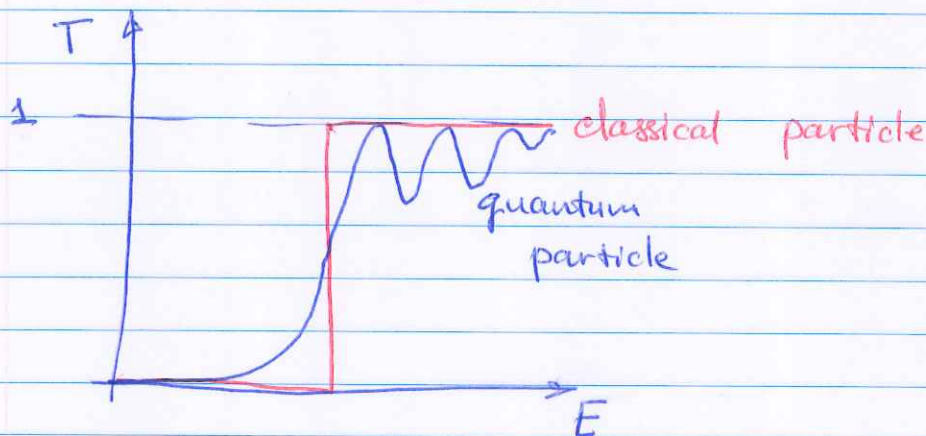 T
1
classical particle
quantum
particle
E